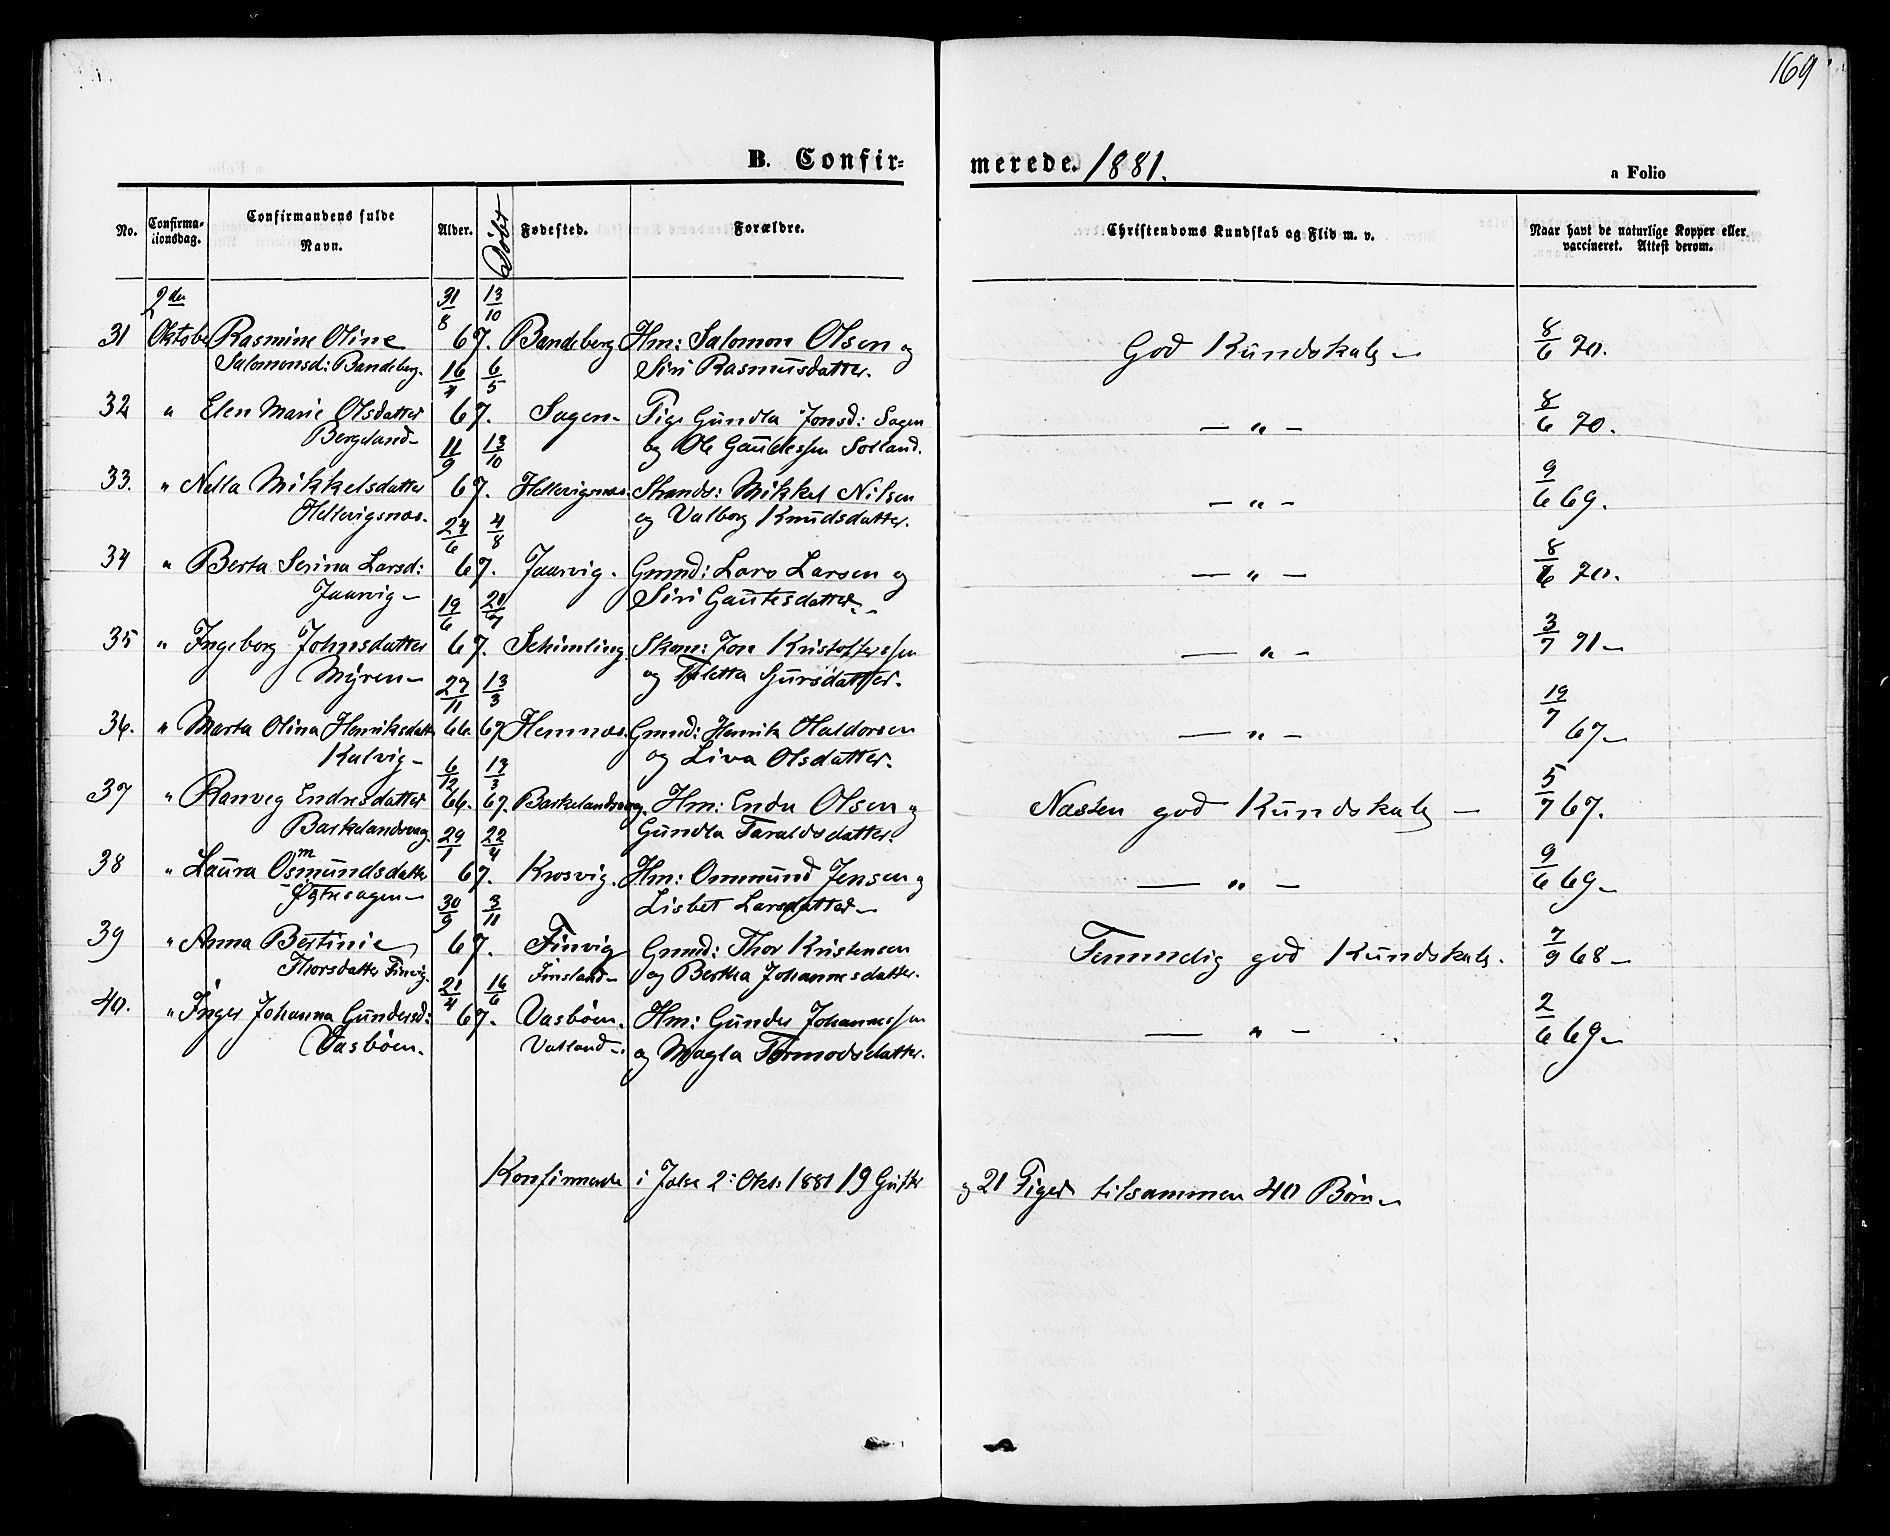 169
B. Confir-
merede. 1881.
a Folio
No.
Confirma-
tionsdag.
Confirmandens fulde
Navn.
Alder.
Döbt
Fødested.
Forældre.
Christendoms Kundskab og Flid m. v.
Naar havt de naturlige Kopper eller
vaccineret. Attest derom.
2den 31/8 13/10
31 Oktobe Rasmine Oline 67. Bandeberg Hm: Salomon Olsen og God Kundskab – 8/6 70.
Salomonsd: Bandeberg. 16/4 6/5 Siri Rasmusdatter.
32 " Elen Marie Olsdatter 67. Sagen – Pige Gundla Jonsd: Sagen – " – 8/6 70.
Bergeland – 11/9 13/10 og Ole Gaudessen Solland.
33. " Nella Mikkelsdatter 67. Hellevigsnæs. Strands: Mikkel Nilsen – " – 9/6 69.
Hellevigsnæs. 24/6 4/8 og Valborg Knudsdatter.
34 " Berta Serina Larsd: 67. Jaasvig. Grmd: Lars Larsen og – " – 8/6 70.
Jaasvig – 19/6 21/7 Siri Gautesdatter. –
35 " Ingeborg Johnsdatter 67. Schimling. Skom: Jon Kristofferssen – " – 3/7 71 –
Myren – 27/11 13/3 og Filetta Sjursdatter.
36. " Marta Olina Henriksdatt 66. 67 Hennæs. Grmd: Henrik Haldorsen – " – 19/7 67 –
Kalvig – 6/12 13/3 og Liva Olsdatter.
37 " Ranveg Endresdatter 66. 67. Barkelandsvog. Hm: Endre Olsen og Næsten god Kundskab – 5/7 67.
Barkelandsvog. 29/1 22/4 Gundla Taraldsdatter.
38 " Laura Osmundsdatter 67. Krosvig. Hm: Ommund Jensen og – " – 9/6 69 –
m
Østresagen – 30/9 3/11 Lisbet Larsdatter –
39 " Anna Bertinie 67. Finvig Grmd: Thor Kristensen Temmelig god Kundskab. 7/9 68 –
Thorsdatter Finvig. 21/4 16/6 Finsland – og Bertha Johannesdatter.
40. " Inger Johanna Gundersd: 67. Vasböen. Hm: Gunder Johannessen – " – 2/6 69 –
Vasböen. Vatland –. og Magla Tormodsdatter.
Konfirmerede i Jølse 2: Okt: 1881 19 Gutter og 21 Piger tilsammen 40 Børn –